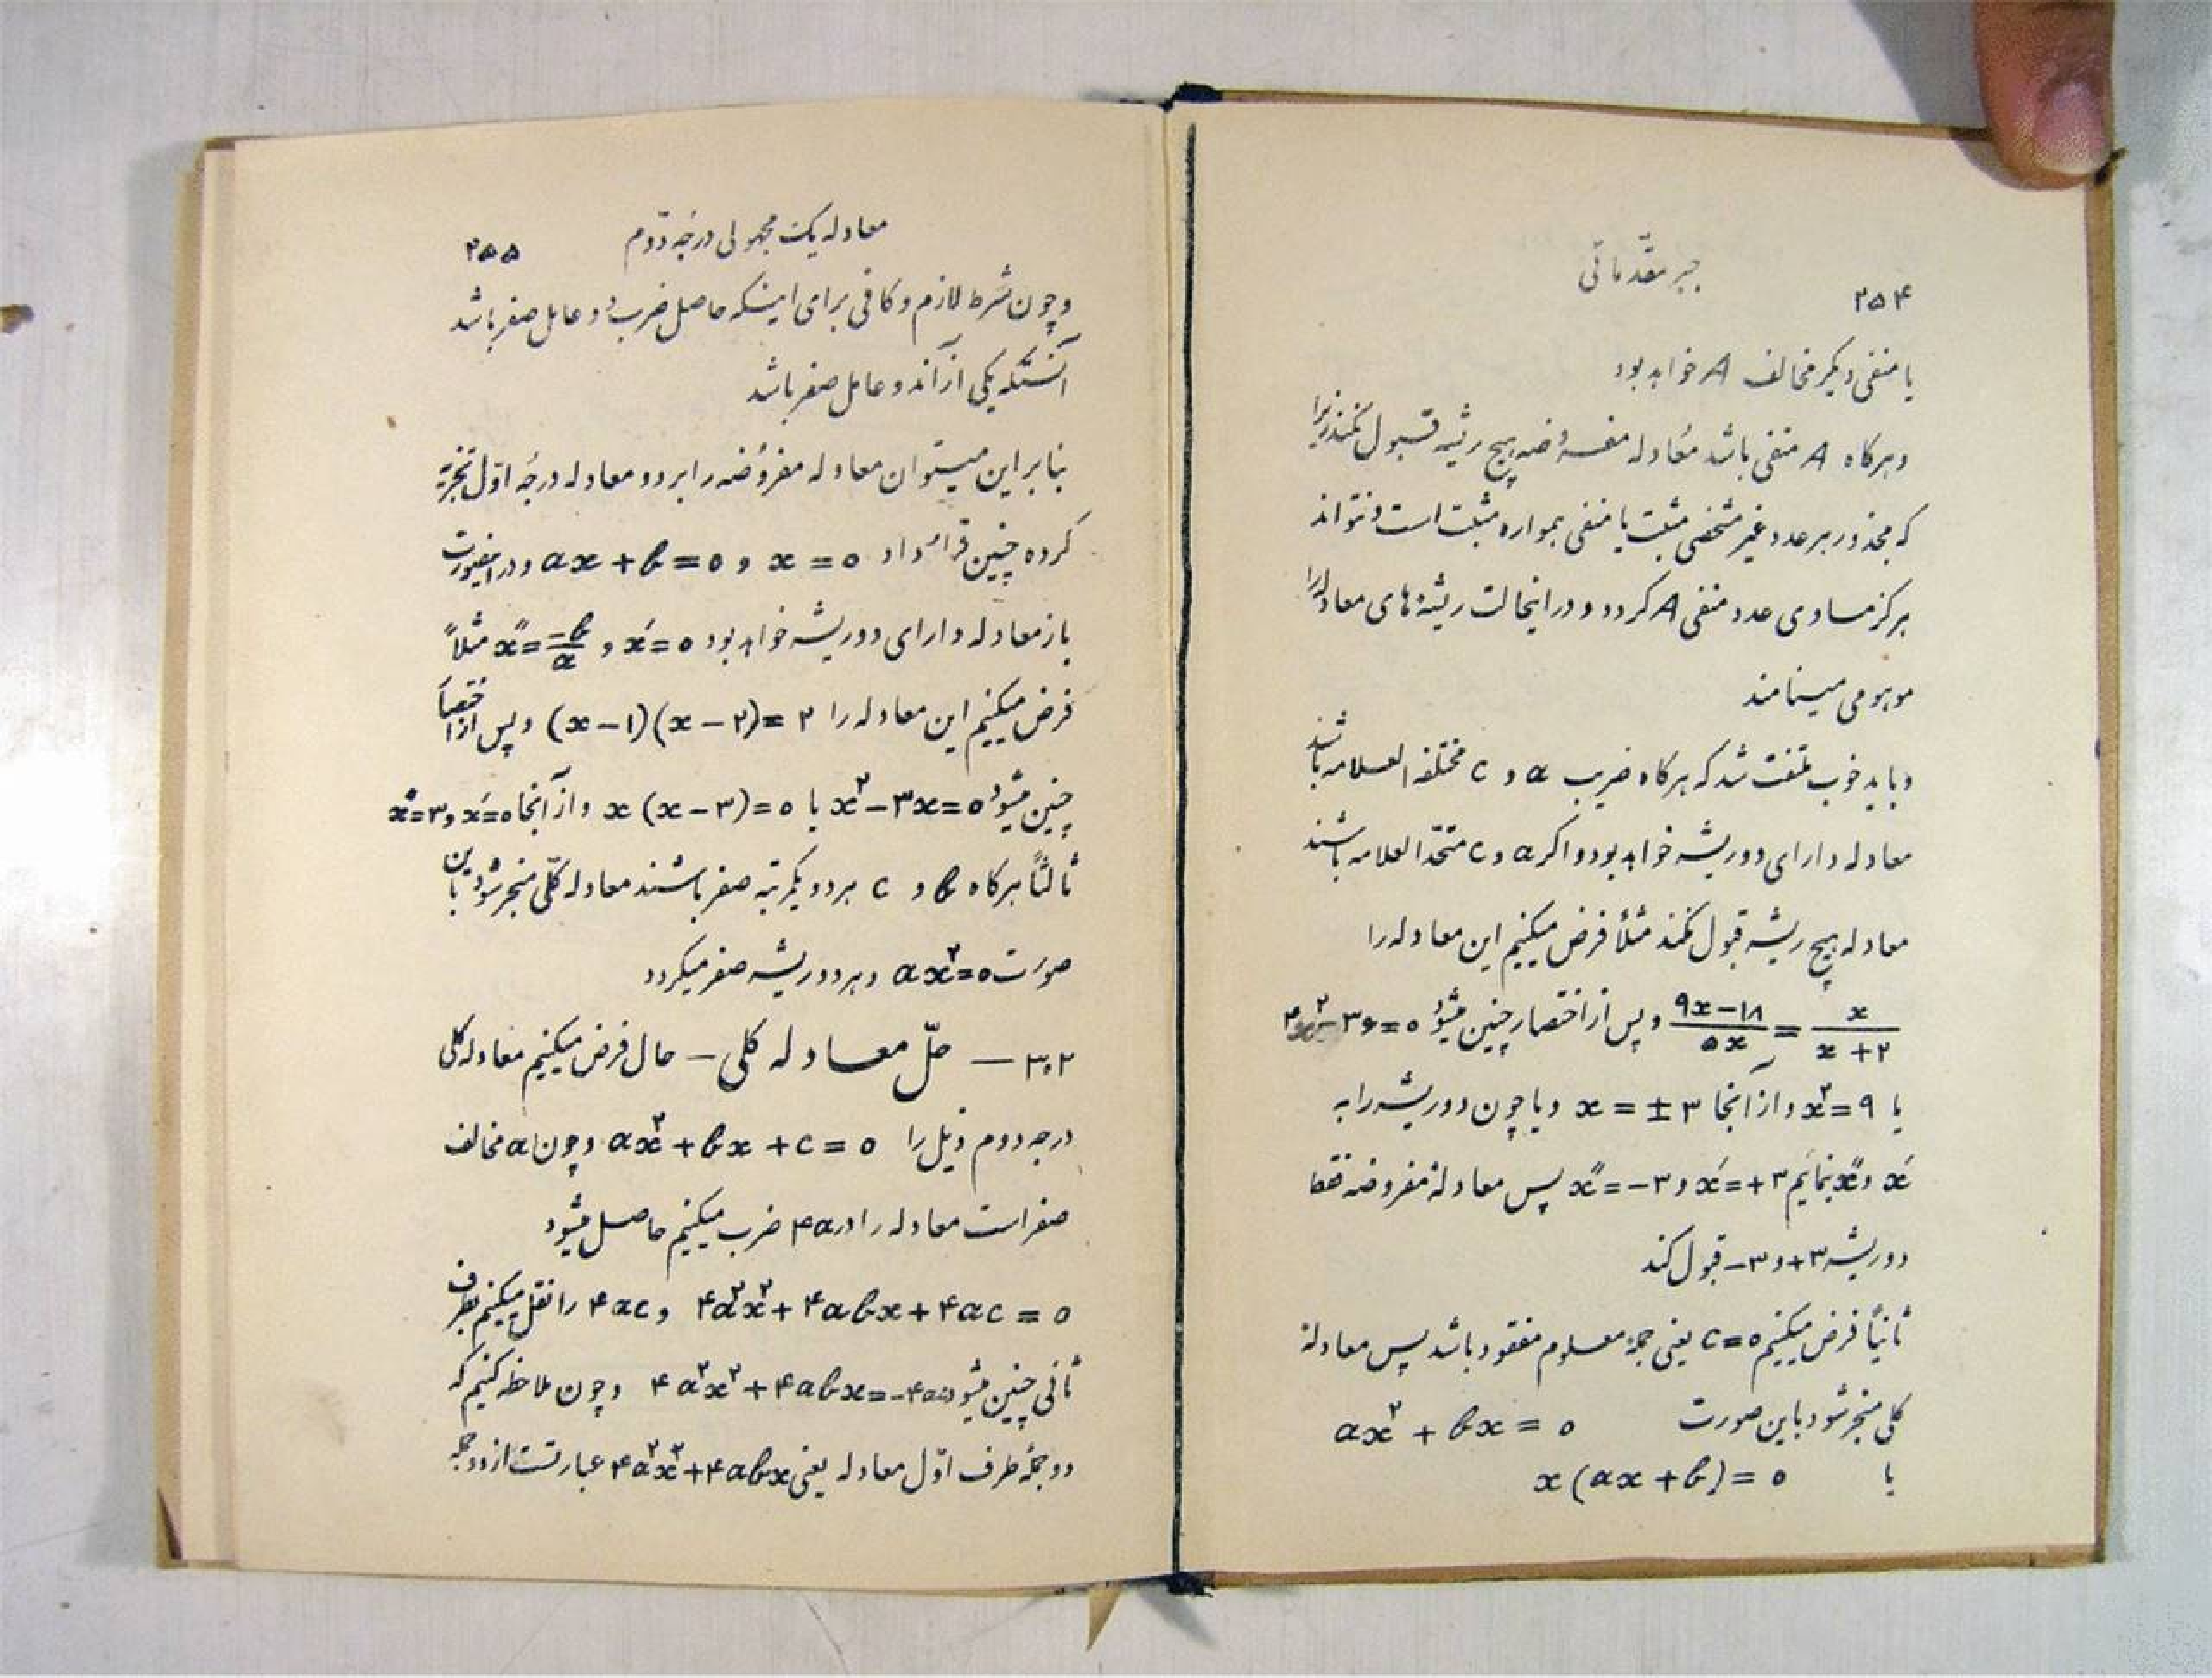 جبر مقدماتی
۲۵۴
یا منفی دیگر مخالف A خواهد بود
و هر گاه A منفی باشد معادله مفروضه هیچ ریشه قبول نکند زیرا
که مجذور هر عدد غیر مشخص مثبت یا منفی همواره مثبت است و نتواند
هرگز مساوی عدد منفی A گردد و در اینحالت ریشه‌های معادله را
موهومی مینامند
و باید خوب ملتفت شد که هر گاه ضریب a و c مختلفه العلامه باشند
معادله دارای دو ریشه خواهد بود و اگر a و c متحد العلامه باشند
معادله هیچ ریشه قبول نکند مثلاً فرض میکنیم این معادله را
x/(x+۲) = (۹x−۱۸)/۵x و پس از اختصار چنین میشود ۴x²−۳۶=۰
یا x²=۹ و از آنجا x = ±۳ و یا چون دو ریشه را به
x′ و x″ بنمائیم x′=+۳ و x″=−۳ پس معادلهٔ مفروضه فقط
دو ریشه ۳+ و ۳− قبول کند
ثانیاً فرض میکنیم c=۰ یعنی جملهٔ معلوم مفقود باشد پس معادلهٔ
کلی منجر شود باین صورت ax² + bx = ۰
یا x(ax+b) = ۰
معادله یک مجهولی درجه دوم
۲۵۵
و چون شرط لازم و کافی برای اینکه حاصل ضرب دو عامل صفر باشد
آنستکه یکی از آندو عامل صفر باشد
بنابراین میتوان معادله مفروضه را بر دو معادله درجه اوّل تجزیه
کرده چنین قرار داد x = ۰ و ax + b = ۰ و در اینصورت
باز معادله دارای دو ریشه خواهد بود x′=۰ و x″=−b/a مثلاً
فرض میکنیم این معادله را (x−۱)(x−۲)=۲ و پس از اختصار
چنین میشود x²−۳x=۰ یا x(x−۳)=۰ و از آنجا x′=۰ و x″=۳
ثالثاً هر گاه b و c هر دو یکمرتبه صفر باشند معادله کلّی منجر شود باین
صورت ax²=۰ و هر دو ریشه صفر میگردد
۳۰۲ — حلّ معادله کلی — حال فرض میکنیم معادله کلی
درجه دوم ذیل را ax² + bx + c = ۰ و چون a مخالف
صفر است معادله را در ۴a ضرب میکنیم حاصل میشود
۴a²x² + ۴abx + ۴ac = ۰ و ۴ac را نقل میکنیم بطرف
ثانی چنین میشود ۴a²x²+۴abx=−۴ac و چون ملاحظه کنیم که
دو جملهٔ طرف اوّل معادله یعنی ۴a²x²+۴abx عبارتست از دو جمله